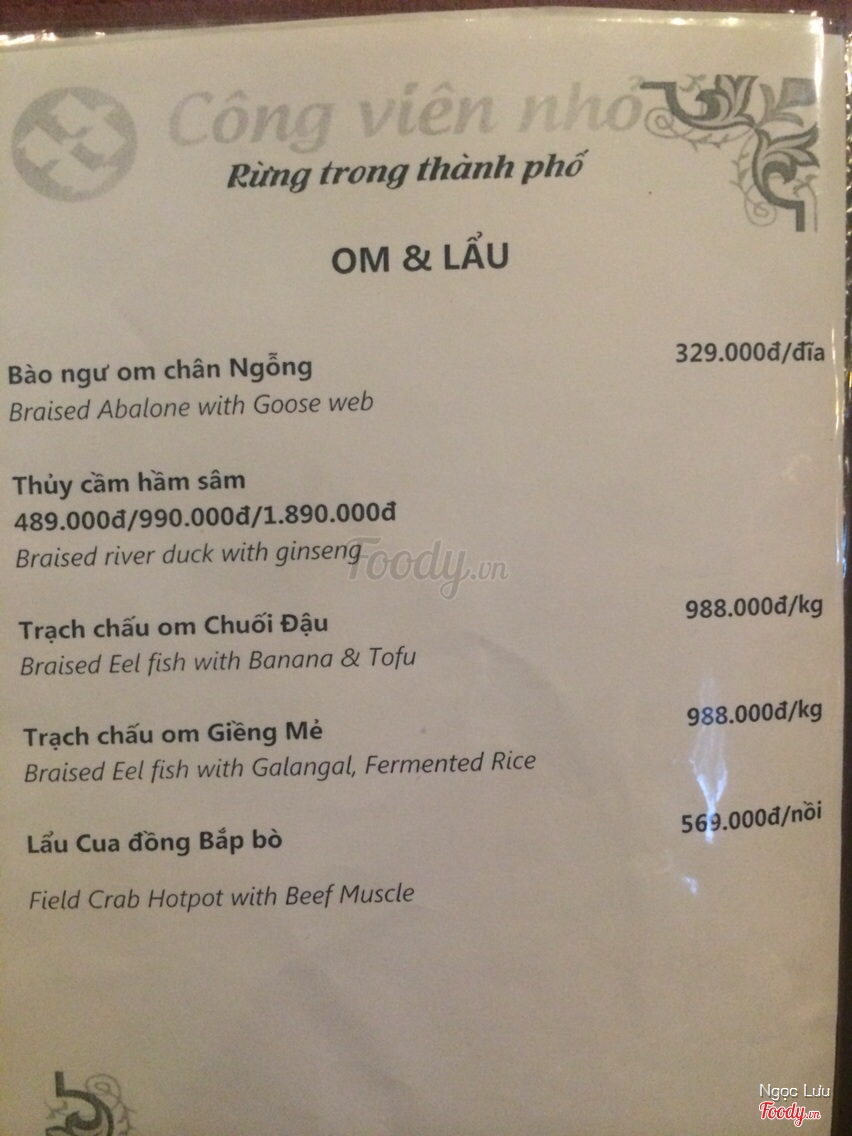 Công viên nhỏ
Rừng trong thành phố
OM & LẨU
Bào ngư om chân Ngỗng 329.000đ/đĩa
Braised Abalone with Goose web
Thủy cầm hầm sâm
489.000đ/990.000đ/1.890.000đ
Braised river duck with ginseng
Foody.vn
Trạch chấu om Chuối Đậu 988.000đ/kg
Braised Eel fish with Banana & Tofu
Trạch chấu om Giềng Mẻ 988.000đ/kg
Braised Eel fish with Galangal, Fermented Rice
Lẩu Cua đồng Bắp bò 569.000đ/nồi
Field Crab Hotpot with Beef Muscle
Ngọc Lưu
Foody.vn